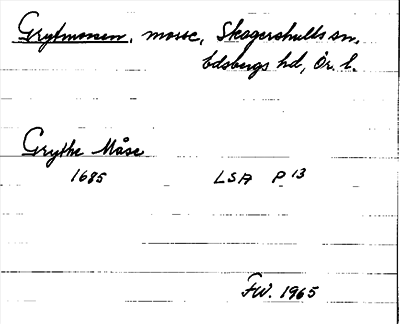 Grytmossen, mosse, Skagershults sn,
Edsbergs hd, Ör. l.
Grythe Måse
1685 LSA P 13
FW. 1965